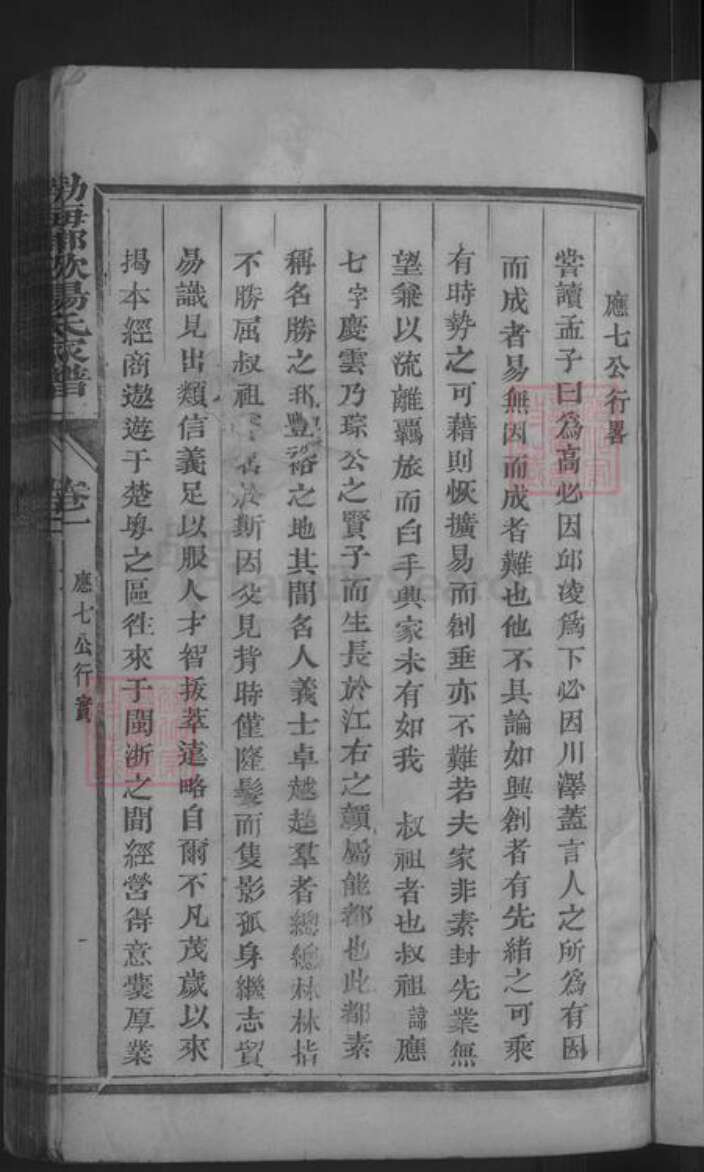 應七公行畧
嘗讀孟子曰爲高必因邱淩爲下必因川澤蓋言人之所爲有因
而成者易無因而成者難也他不具論如興創者有先緒之可乘
有時勢之可藉則恢擴易而創垂亦不難若夫家非素封先業無
望兼以流離羈旅而白手興家未有如我 叔祖者也叔祖諱應
七字慶雲乃琮公之賢子而生長於江右之顛屬能都也此都素
稱名勝之邦豐裕之地其間名人義士卓越超羣者總總林林指
不勝屈叔祖 於斯因父見背時僅隆髮而隻影孤身繼志貿
易識見出類信義足以服人才智拔萃遠略自爾不凡茂歲以來
揭本經商遨遊于楚粵之區徃來于閩浙之間經營得意囊厚業
勃海郡歐陽氏家譜 卷一 應七公行實
FamilySearch